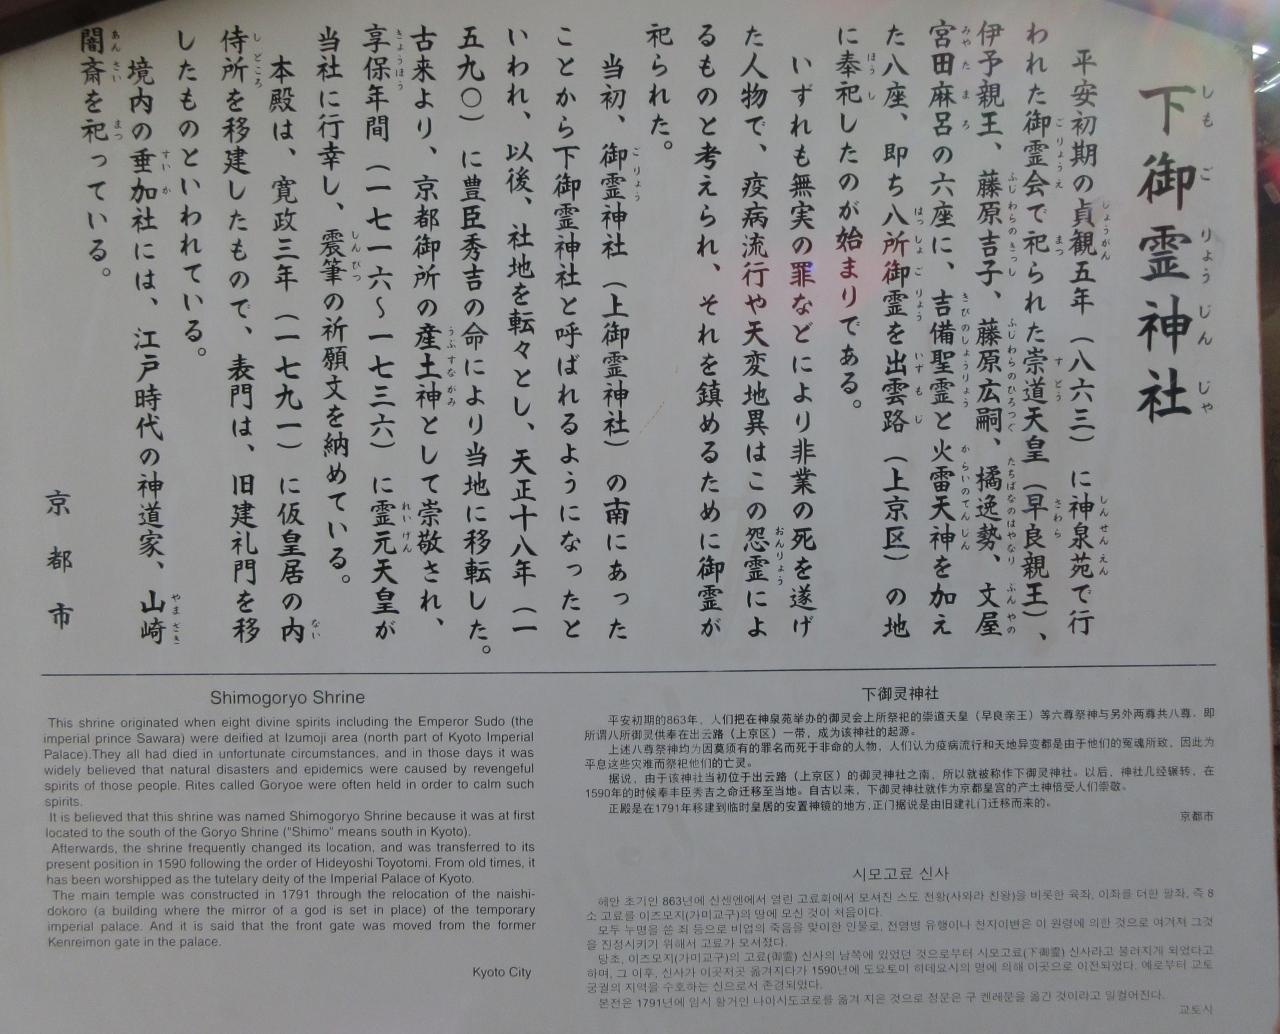 下御霊神社
平安初期の貞観五年（八六三）に神泉苑で行
われた御霊会で祀られた崇道天皇（早良親王）、
伊予親王、藤原吉子、藤原広嗣、橘逸勢、文屋
宮田麻呂の六座に、吉備聖霊と火雷天神を加え
た八座、即ち八所御霊を出雲路（上京区）の地
に奉祀したのが始まりである。
いずれも無実の罪などにより非業の死を遂げ
た人物で、疫病流行や天変地異はこの怨霊によ
るものと考えられ、それを鎮めるために御霊が
祀られた。
当初、御霊神社（上御霊神社）の南にあった
ことから下御霊神社と呼ばれるようになったと
いわれ、以後、社地を転々とし、天正十八年（一
五九〇）に豊臣秀吉の命により当地に移転した。
古来より、京都御所の産土神として崇敬され、
享保年間（一七一六～一七三六）に霊元天皇が
当社に行幸し、震筆の祈願文を納めている。
本殿は、寛政三年（一七九一）に仮皇居の内
侍所を移建したもので、表門は、旧建礼門を移
したものといわれている。
境内の垂加社には、江戸時代の神道家、山崎
闇斎を祀っている。
京都市
Shimogoryo Shrine
This shrine originated when eight divine spirits including the Emperor Sudo (the
imperial prince Sawara) were deified at Izumoji area (north part of Kyoto Imperial
Palace).They all had died in unfortunate circumstances, and in those days it was
widely believed that natural disasters and epidemics were caused by revengeful
spirits of those people. Rites called Goryoe were often held in order to calm such
spirits.
It is believed that this shrine was named Shimogoryo Shrine because it was at first
located to the south of the Goryo Shrine ("Shimo" means south in Kyoto).
Afterwards, the shrine frequently changed its location, and was transferred to its
present position in 1590 following the order of Hideyoshi Toyotomi. From old times, it
has been worshipped as the tutelary deity of the Imperial Palace of Kyoto.
The main temple was constructed in 1791 through the relocation of the naishi-
dokoro (a building where the mirror of a god is set in place) of the temporary
imperial palace. And it is said that the front gate was moved from the former
Kenreimon gate in the palace.
Kyoto City
下御灵神社
平安初期的863年，人们把在神泉苑举办的御灵会上所祭祀的崇道天皇（早良亲王）等六尊祭神与另外两尊共八尊，即
所谓八所御灵供奉在出云路（上京区）一带，成为该神社的起源。
上述八尊祭神均为因莫须有的罪名而死于非命的人物，人们认为疫病流行和天地异变都是由于他们的冤魂所致，因此为
平息这些灾难而祭祀他们的亡灵。
据说，由于该神社当初位于出云路（上京区）的御灵神社之南，所以就被称作下御灵神社。以后，神社几经辗转，在
1590年的时候奉丰臣秀吉之命迁移至当地。自古以来，下御灵神社就作为京都皇宫的产土神倍受人们崇敬。
正殿是在1791年移建到临时皇居的安置神镜的地方,正门据说是由旧建礼门迁移而来的。
京都市
시모고료 신사
헤안 초기인 863년에 신센엔에서 열린 고료회에서 모셔진 스도 전황(사와라 친왕)을 비롯한 육좌, 이좌를 더한 팔좌, 즉 8
소 고료를 이즈모지(가미교구)의 땅에 모신 것이 처음이다.
모두 누명을 쓴 죄 등으로 비업의 죽음을 맞이한 인물로, 전염병 유행이나 천지이변은 이 원령에 의한 것으로 여겨져 그것
을 진정시키기 위해서 고료가 모셔졌다.
당초, 이즈모지(가미교구)의 고료(御霊) 신사의 남쪽에 있었던 것으로부터 시모고료(下御霊) 신사라고 불려지게 되었다고
하며, 그 이후, 신사가 이곳저곳 옮겨지다가 1590년에 도요토미 히데요시의 명에 의해 이곳으로 이전되었다. 예로부터 교토
궁궐의 지역을 수호하는 신으로서 존경되었다.
본전은 1791년에 임시 황거인 나이시도코로를 옮겨 지은 것으로 정문은 구 켄레문을 옮긴 것이라고 일컬어진다.
교토시